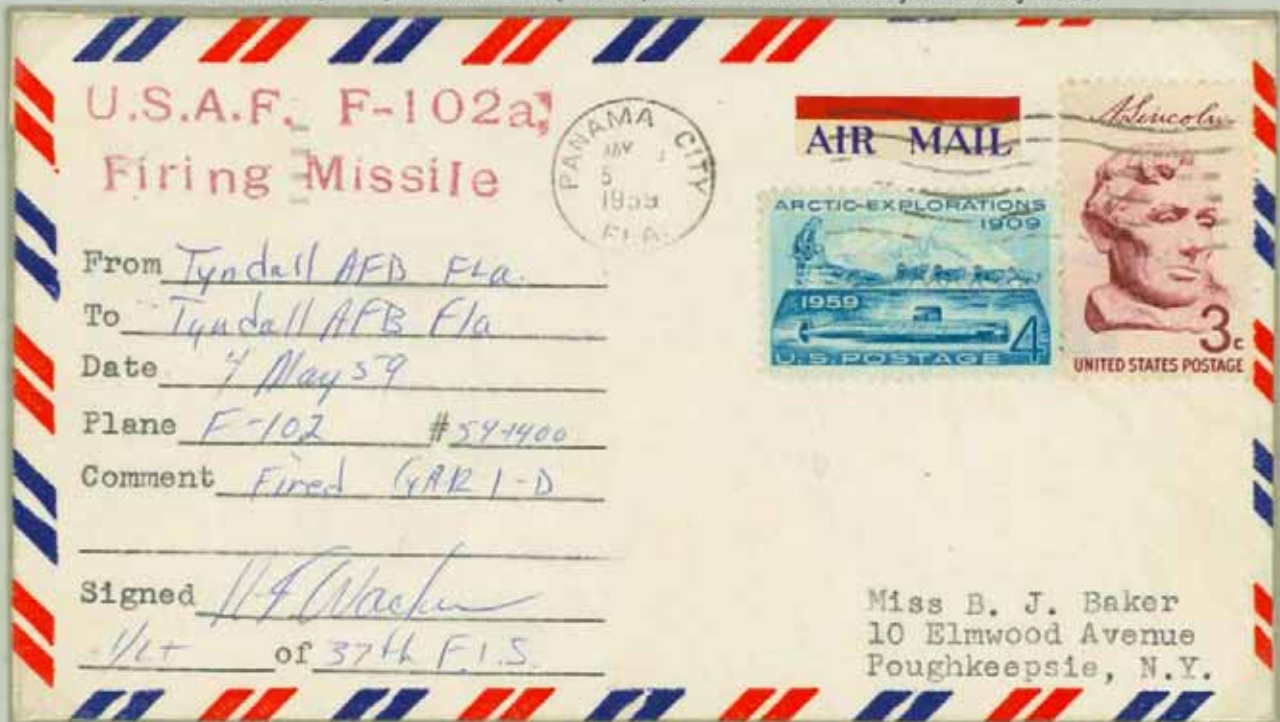 U.S.A.F. F-102a,
Firing Missile
PANAMA CITY
MAY
5
1959
FLA.
AIR MAIL
ARCTIC-EXPLORATIONS
1909
1959
4c
U.S. POSTAGE
A. Lincoln
3c
UNITED STATES POSTAGE
From Tyndall AFB Fla.
To Tyndall AFB Fla
Date 4 May 59
Plane F-102 #
Comment Fired GAR 1-D
Signed
1/Lt of 37th F.I.S.
Miss B. J. Baker
10 Elmwood Avenue
Poughkeepsie, N.Y.